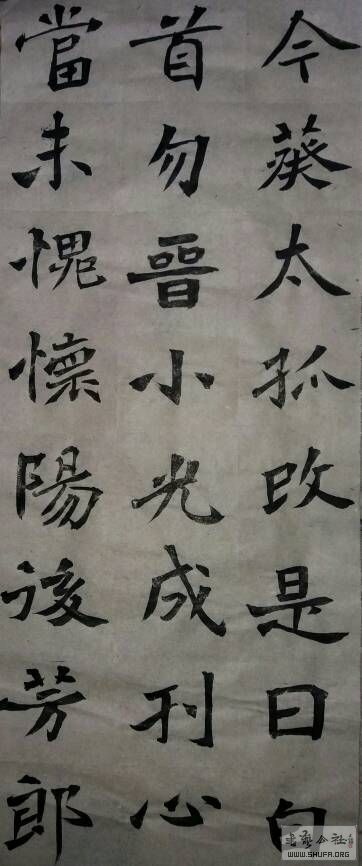 今葵太孤改是日白
首勿晉小光成刊心
當未愧懷陽後芳郎
WWW.SHUFA.ORG